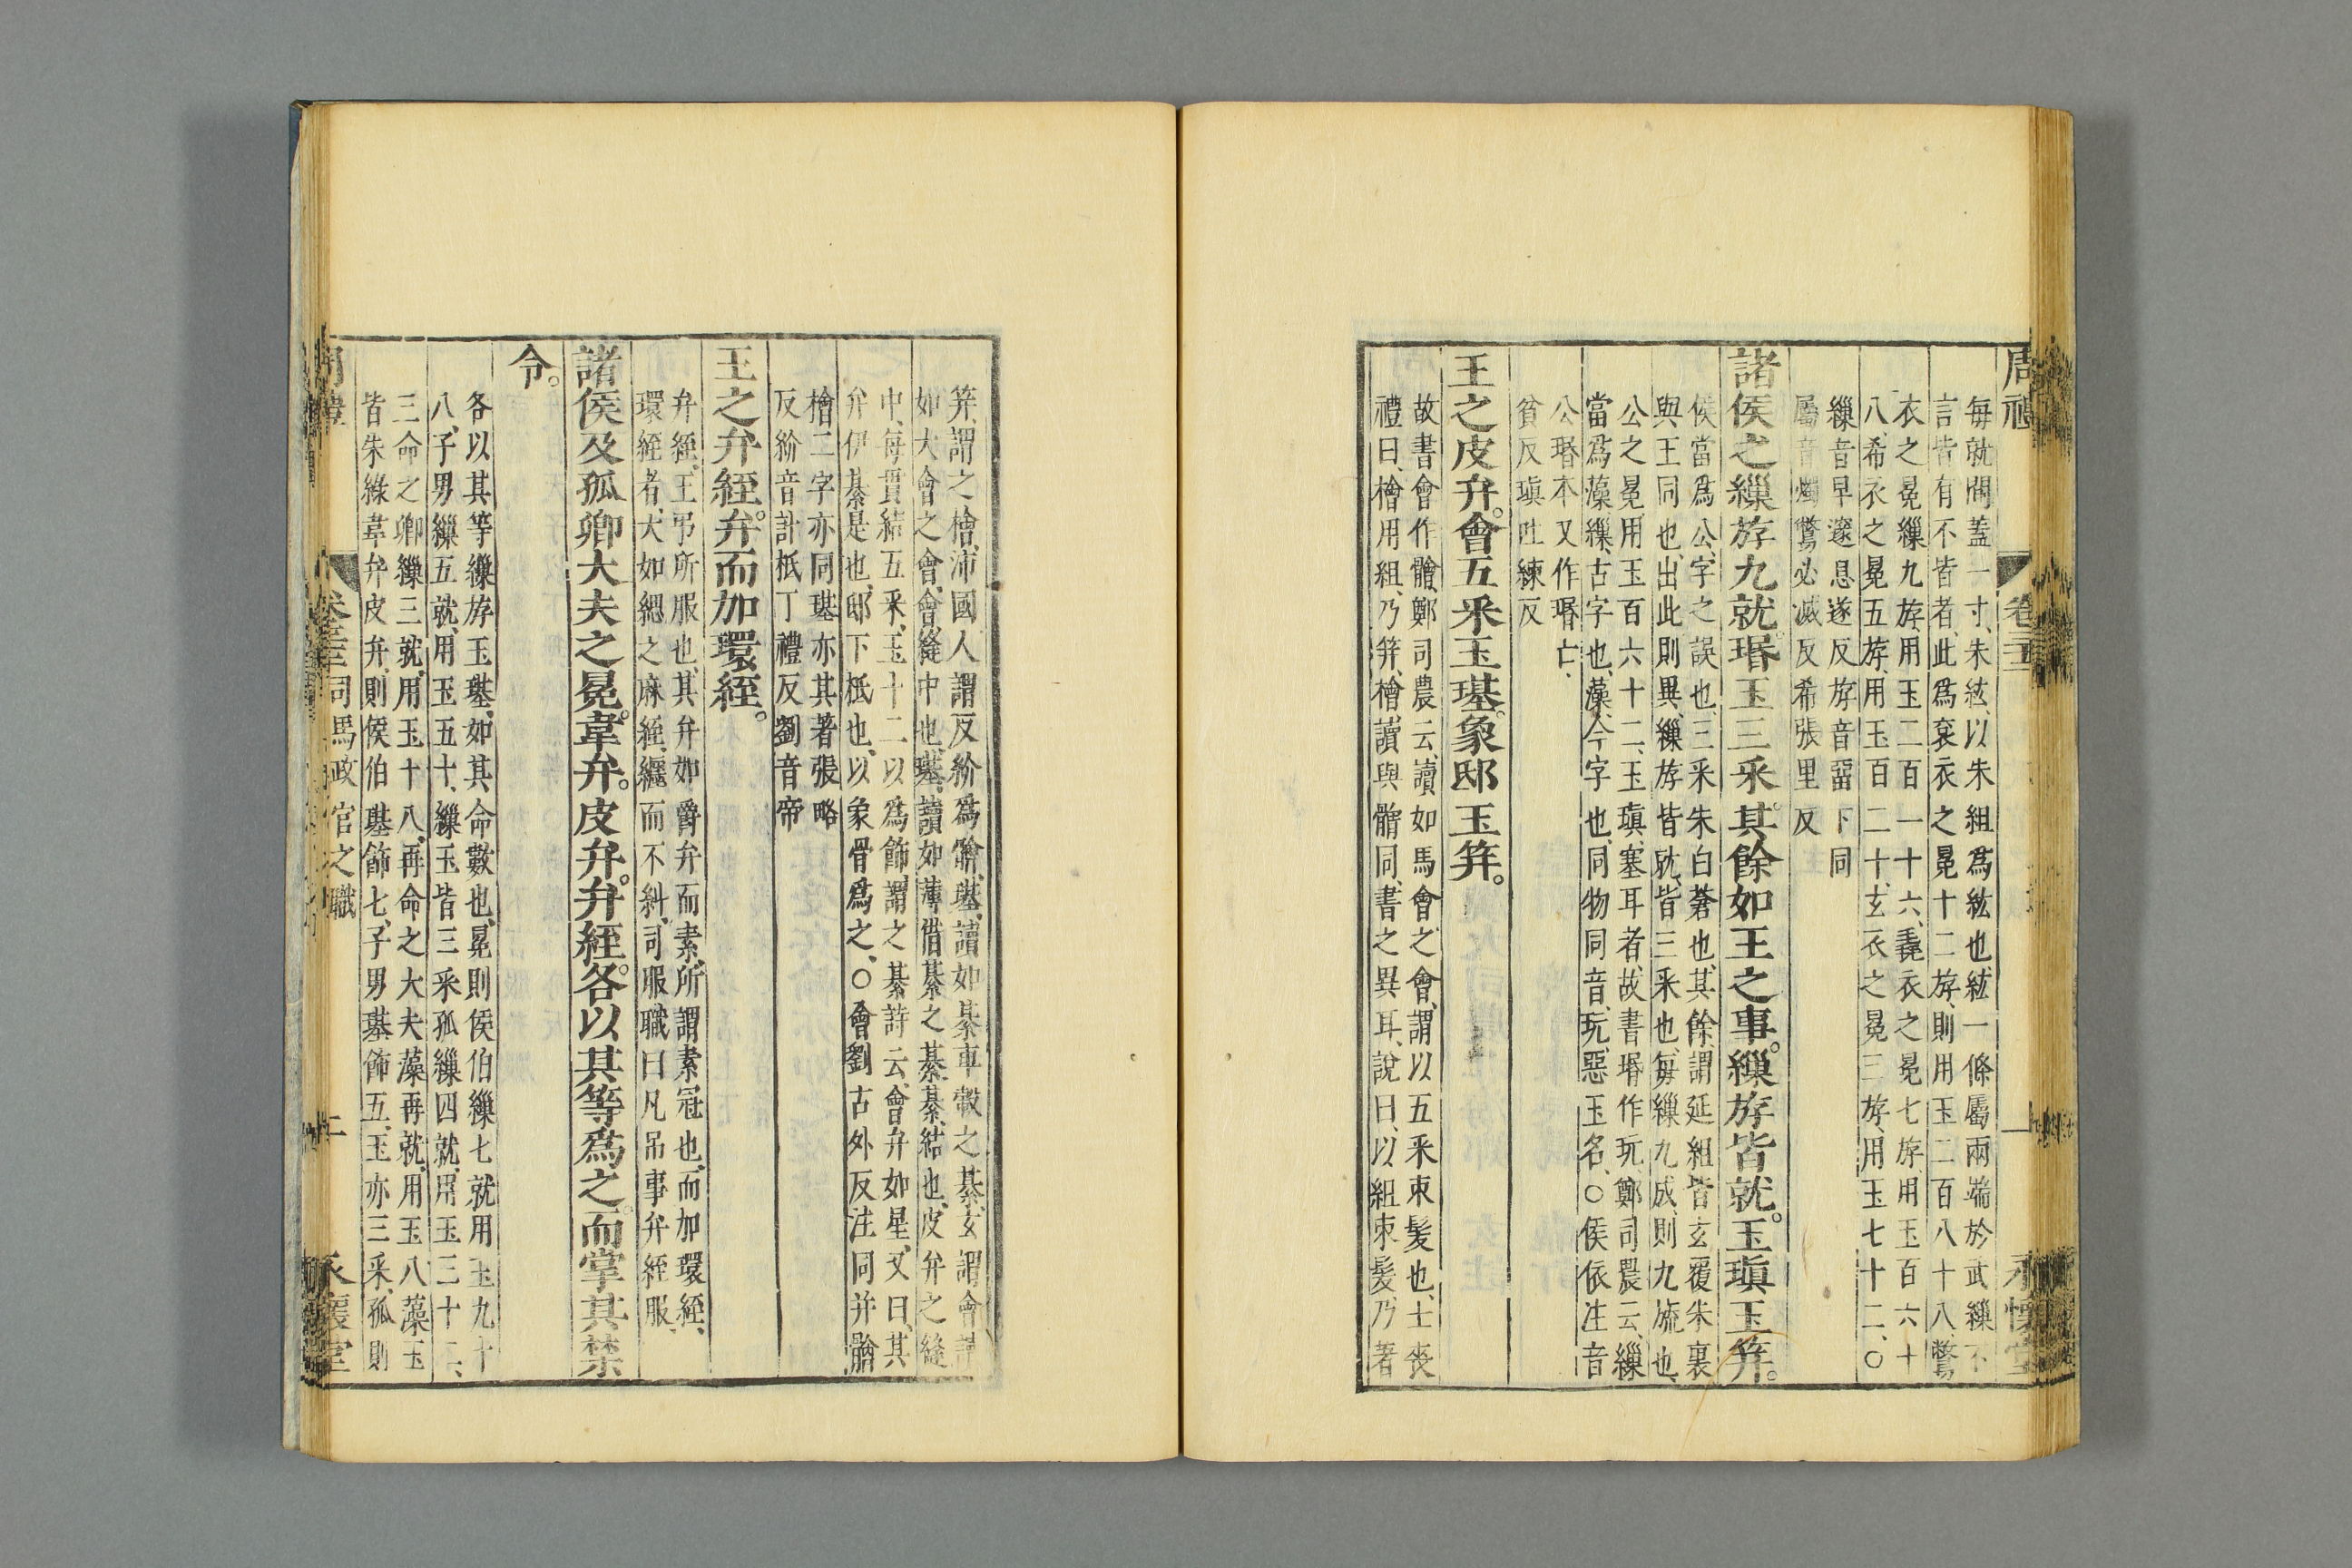 周禮 卷三十二 一 永懷堂
每就間蓋一寸、朱紘、以朱組爲紘也、紘一條屬兩端於武繅不
言皆有不皆者、此爲袞衣之冕十二斿、則用玉二百八十八、鷩
衣之冕繅九斿、用玉二百一十六、毳衣之冕七斿、用玉百六十
八、希衣之冕五斿、用玉百二十、玄衣之冕三斿、用玉七十二、〇
繅音早邃息遂反斿音畱下同
屬音燭鷩必滅反希張里反
諸侯之繅斿九就。瑉玉三采。其餘如王之事。繅斿皆就。玉瑱玉筓。
侯當爲公、字之誤也、三采朱白蒼也、其餘謂延組皆玄覆朱裏
與王同也、出此則異、繅斿皆就、皆三采也、每繅九成、則九旒也、
公之冕用玉百六十二、玉瑱、塞耳者、故書瑉作玩、鄭司農云、繅
當爲藻、繅、古字也、藻、今字也、同物同音、玩、惡玉名、〇侯依注音
公瑉本又作瑉亡、
貧反瑱吐練反
王之皮弁。會五采玉璂。象邸玉筓。
故書會作䯤、鄭司農云、讀如馬會之會、謂以五采束髮也、士喪
禮曰、檜用組、乃筓、檜讀與䯤同、書之異耳、說曰、以組束髮、乃著
筓、謂之檜、沛國人謂反紒爲䯤、璂、讀如綦車轂之綦、玄謂會讀
如大會之會、會、縫中也、璂、讀如薄借綦之綦、綦、結也、皮弁之縫
中、每貫結五采玉十二以爲飾、謂之綦、詩云、會弁如星、又曰、其
弁伊綦是也、邸下柢也、以象骨爲之、〇會劉古外反注同并䯤
檜二字亦同璂亦其著張略
反紒音計柢丁禮反劉音帝
王之弁絰。弁而加環絰。
弁絰、王弔所服也、其弁如爵弁而素、所謂素冠也、而加環絰、
環絰者、大如緦之麻絰、纏而不糾、司服職曰凡吊事弁絰服、
諸侯及孤卿大夫之冕。韋弁。皮弁。弁絰。各以其等爲之。而掌其禁
令。
各以其等繅斿玉璂、如其命數也、冕則侯伯繅七就用玉九十
八、子男繅五就、用玉五十、繅玉皆三采孤繅四就、用玉三十二、
三命之卿繅三就、用玉十八、再命之大夫藻再就、用玉八藻玉
皆朱綠韋弁皮弁、則侯伯璂飾七、子男璂飾五、玉亦三采、孤則
周禮 卷三十二 司馬政官之職 二 永懷堂